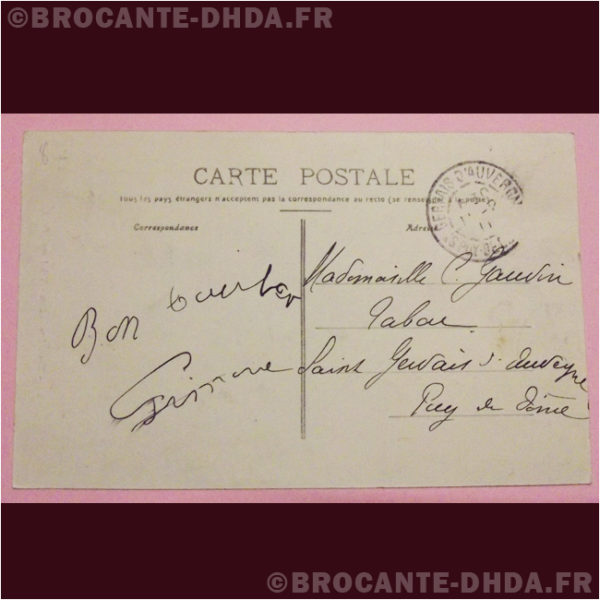 ©BROCANTE-DHDA.FR
8
CARTE POSTALE
Tous les pays étrangers n'acceptent pas la correspondance au recto (se renseigner à la poste)
Correspondance
GERVAIS D'AUVERGN
PUY-DE
Bon
Mademoiselle C. Gaudin
Tabac
Saint Gervais d'Auvergne
Puy de Dôme
©BROCANTE-DHDA.FR